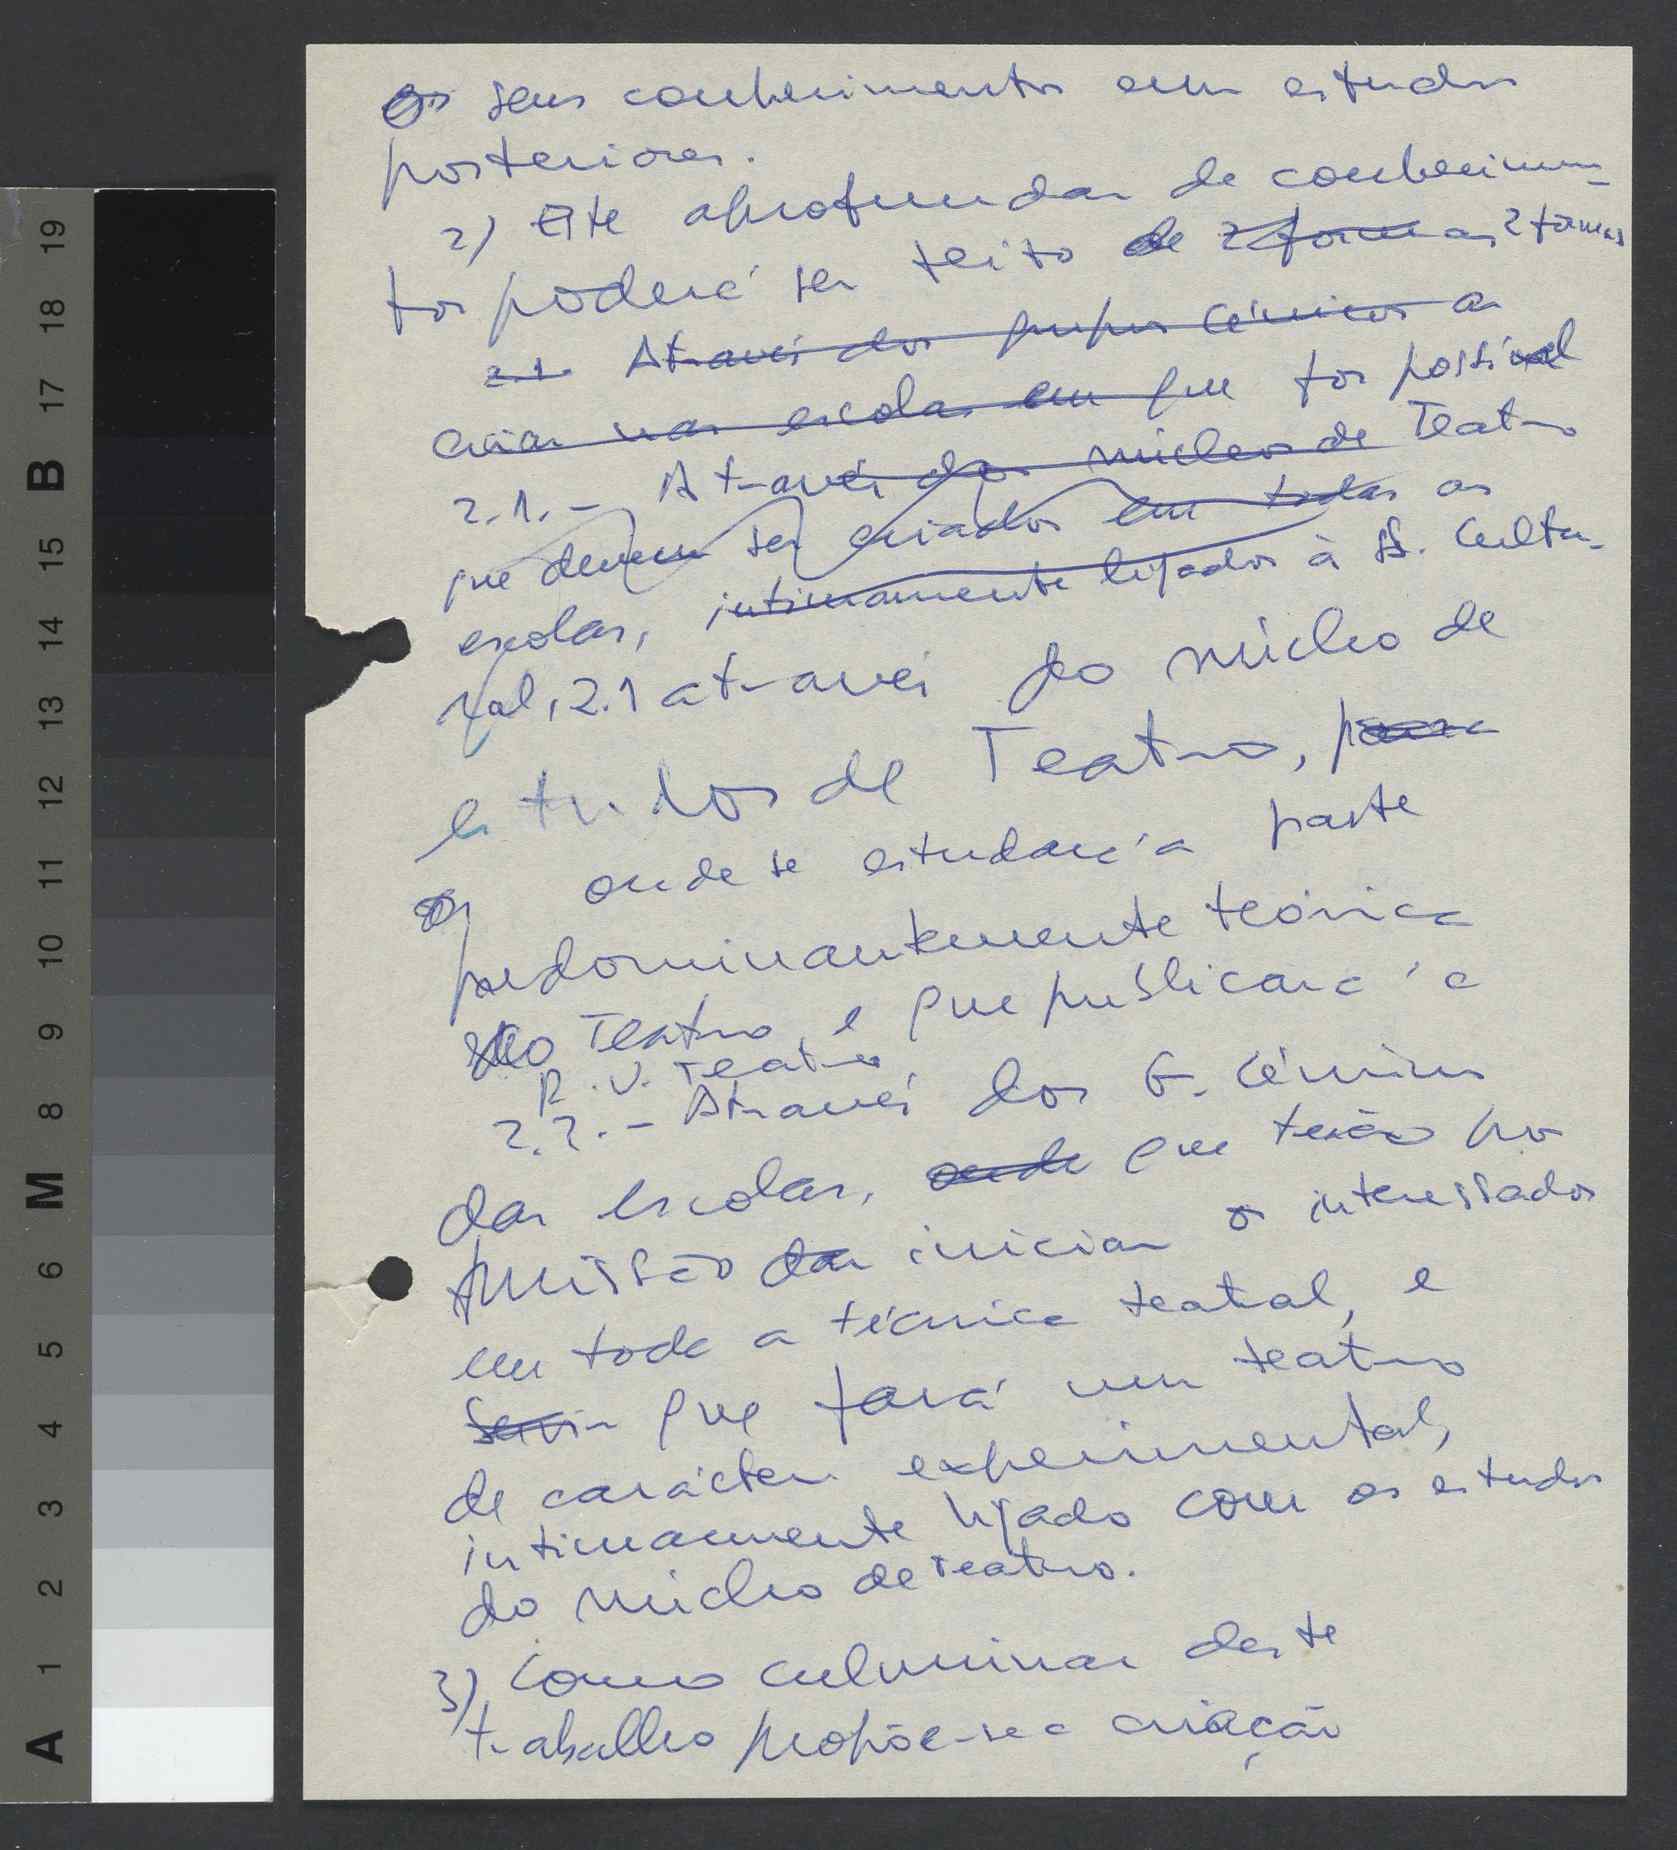 os seus conhecimentos em estudos
posteriores.
2) Este aprofundar de conhecimen-
tos poderá ser feito de 2 formas 2 formas
2.1. Através dos grupos Cénicos a
criar nas escolas em que for possível
2.1. - Através dos núcleos de Teatro
que devem ser criados em todas as
escolas, intimamente ligados à S. Cultu-
ral, 2.1 através do núcleo de
estudos de Teatro, para
onde se estudará a parte
predominantemente teórica
do Teatro e que publicará a
R. U. Teatro
2.2. - Através dos G. Cénicos
das escolas, onde que terão por
missão dar iniciar os interessados
em toda a técnica teatral, e
Servir que fará um teatro
de carácter experimental,
intimamente ligado com os estudos
do núcleo de Teatro.
3) Como culminar deste
trabalho propõe-se a criação
19
18
17
B
16
15
14
13
12
11
10
9
8
M
7
6
5
4
3
2
1
A